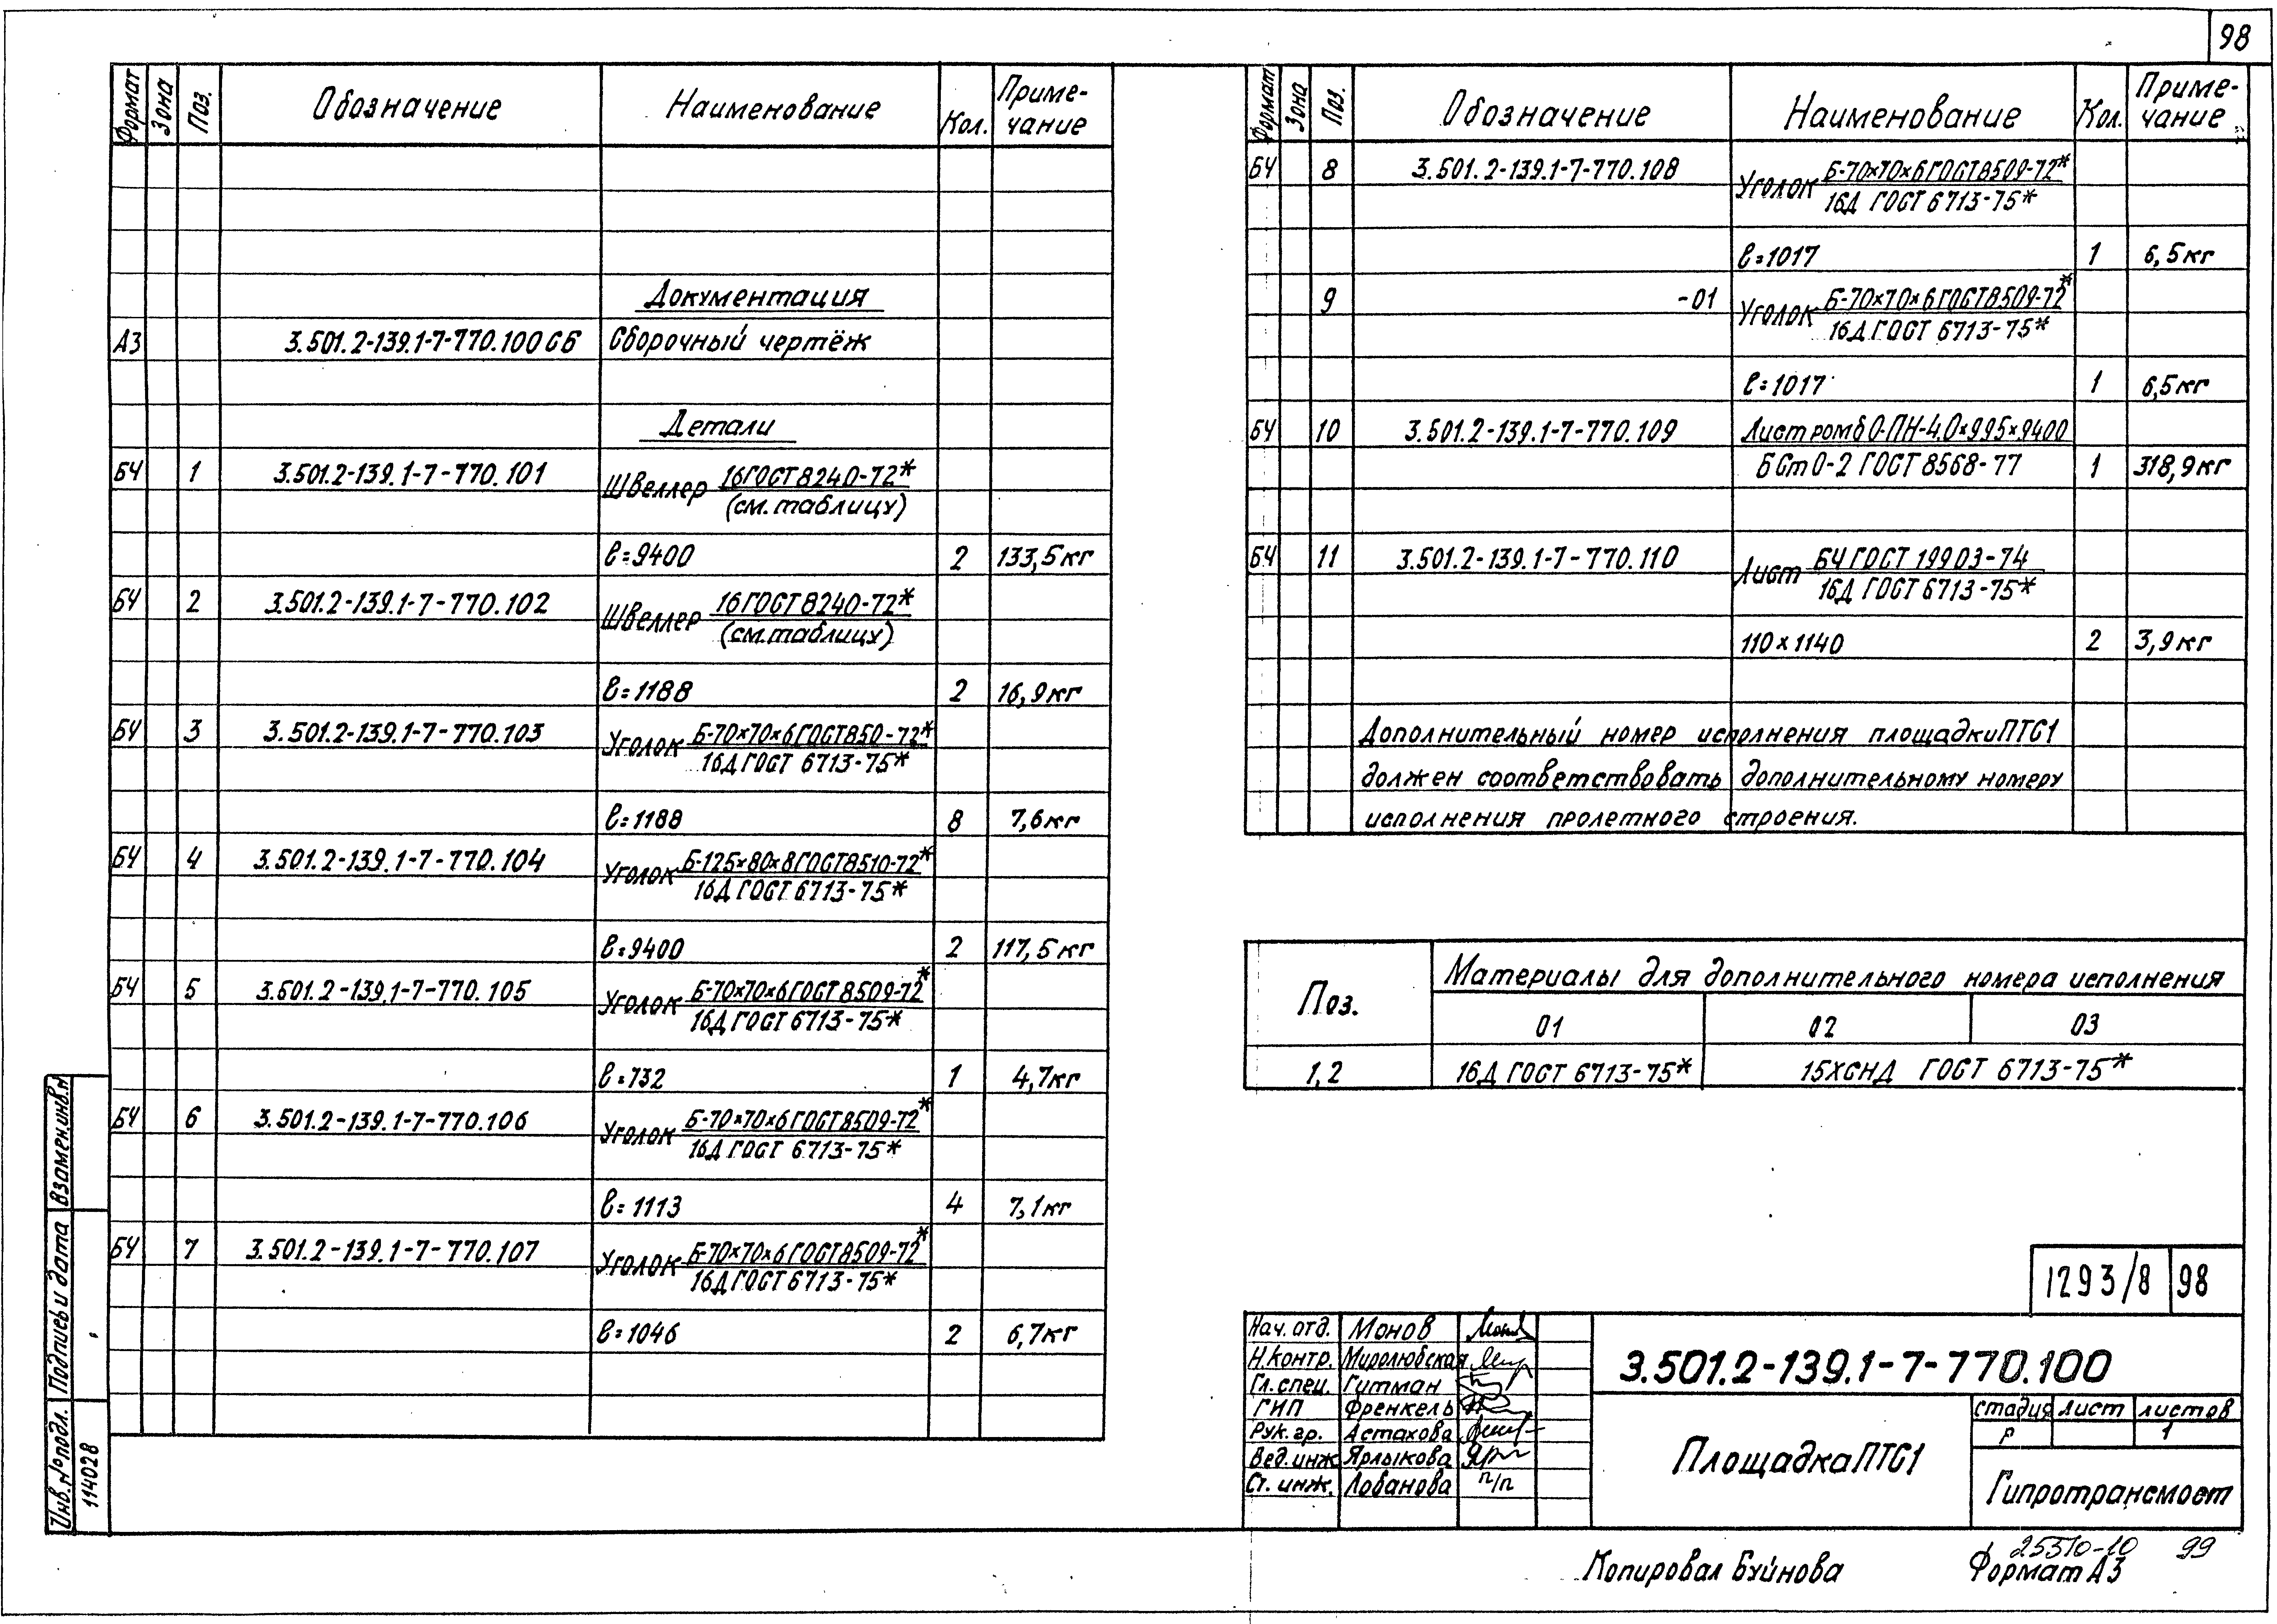 98
Формат Зона Поз. Обозначение Наименование Кол. Приме-чание
Документация
А3 3.501.2-139.1-7-770.100СБ Сборочный чертёж
Детали
БЧ 1 3.501.2-139.1-7-770.101 Швеллер 16ГОСТ8240-72*
(см.таблицу)
ℓ=9400 2 133,5кг
БЧ 2 3.501.2-139.1-7-770.102 Швеллер 16ГОСТ8240-72*
(см.таблицу)
ℓ=1188 2 16,9кг
БЧ 3 3.501.2-139.1-7-770.103 Уголок Б-70×70×6ГОСТ850-72*
16Д ГОСТ 6713-75*
ℓ=1188 8 7,6кг
БЧ 4 3.501.2-139.1-7-770.104 Уголок Б-125×80×8ГОСТ8510-72*
16Д ГОСТ 6713-75*
ℓ=9400 2 117,5кг
БЧ 5 3.501.2-139.1-7-770.105 Уголок Б-70×70×6ГОСТ8509-72*
16Д ГОСТ 6713-75*
ℓ=732 1 4,7кг
БЧ 6 3.501.2-139.1-7-770.106 Уголок Б-70×70×6ГОСТ8509-72*
16Д ГОСТ 6713-75*
ℓ=1113 4 7,1кг
БЧ 7 3.501.2-139.1-7-770.107 Уголок Б-70×70×6ГОСТ8509-72*
16Д ГОСТ 6713-75*
ℓ=1046 2 6,7кг
Формат Зона Поз. Обозначение Наименование Кол. Приме-чание
БЧ 8 3.501.2-139.1-7-770.108 Уголок Б-70×70×6ГОСТ8509-72*
16Д ГОСТ 6713-75*
ℓ=1017 1 6,5кг
9 -01 Уголок Б-70×70×6ГОСТ8509-72*
16Д ГОСТ 6713-75*
ℓ=1017 1 6,5кг
БЧ 10 3.501.2-139.1-7-770.109 Лист ромб О-ПН-4.0×995×9400
БСт0-2 ГОСТ 8568-77 1 318,9кг
БЧ 11 3.501.2-139.1-7-770.110 Лист БЧ ГОСТ 19903-74
16Д ГОСТ 6713-75*
110×1140 2 3,9кг
Дополнительный номер исполнения площадки ПТС1
должен соответствовать дополнительному номеру
исполнения пролетного строения.
Поз. Материалы для дополнительного номера исполнения
01 02 03
1,2 16Д ГОСТ 6713-75* 15ХСНД ГОСТ 6713-75*
1293/8 98
Нач. отд. Монов
Н.контр. Миролюбская
Гл. спец. Гутман
ГИП Френкель
Рук. гр. Астахова
Вед.инж Ярлыкова
Ст. инж. Лобанова п/п
3.501.2-139.1-7-770.100
Площадка ПТС1
стадия лист листов
Р 1
Гипротрансмост
Взамен.инв.№
Подпись и дата
Инв.№подл. 114028
Копировал Буйнова
Формат А3
25310-10 99